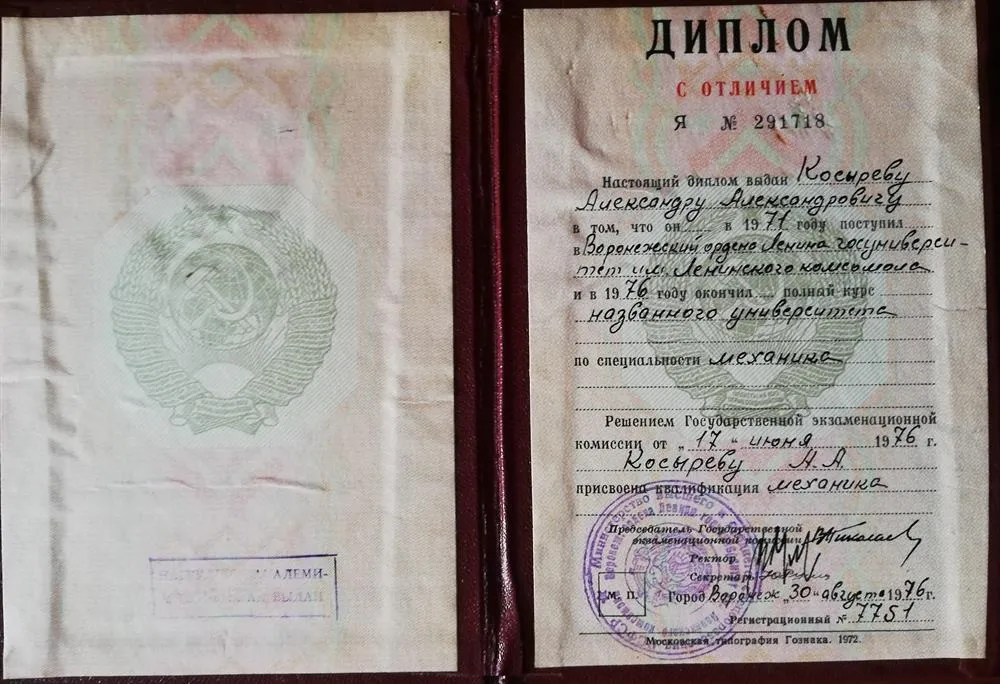 АЛЕМИ-
ВЫДАН
ДИПЛОМ
С ОТЛИЧИЕМ
Я № 291718
Настоящий диплом выдан Косыреву
Александру Александровичу
в том, что он в 1971 году поступил
в Воронежский ордена Ленина госуниверси-
тет им. Ленинского комсомола
и в 1976 году окончил полный курс
названного университета
по специальности механика
Решением Государственной экзаменационной
комиссии от „17" июня 1976 г.
Косыреву А.А.
присвоена квалификация механика
Председатель Государственной
экзаменационной комиссии
Ректор
Секретарь
М. П. Город Воронеж „30" августа 1976 г.
Регистрационный № 7751
Московская типография Гознака. 1972.